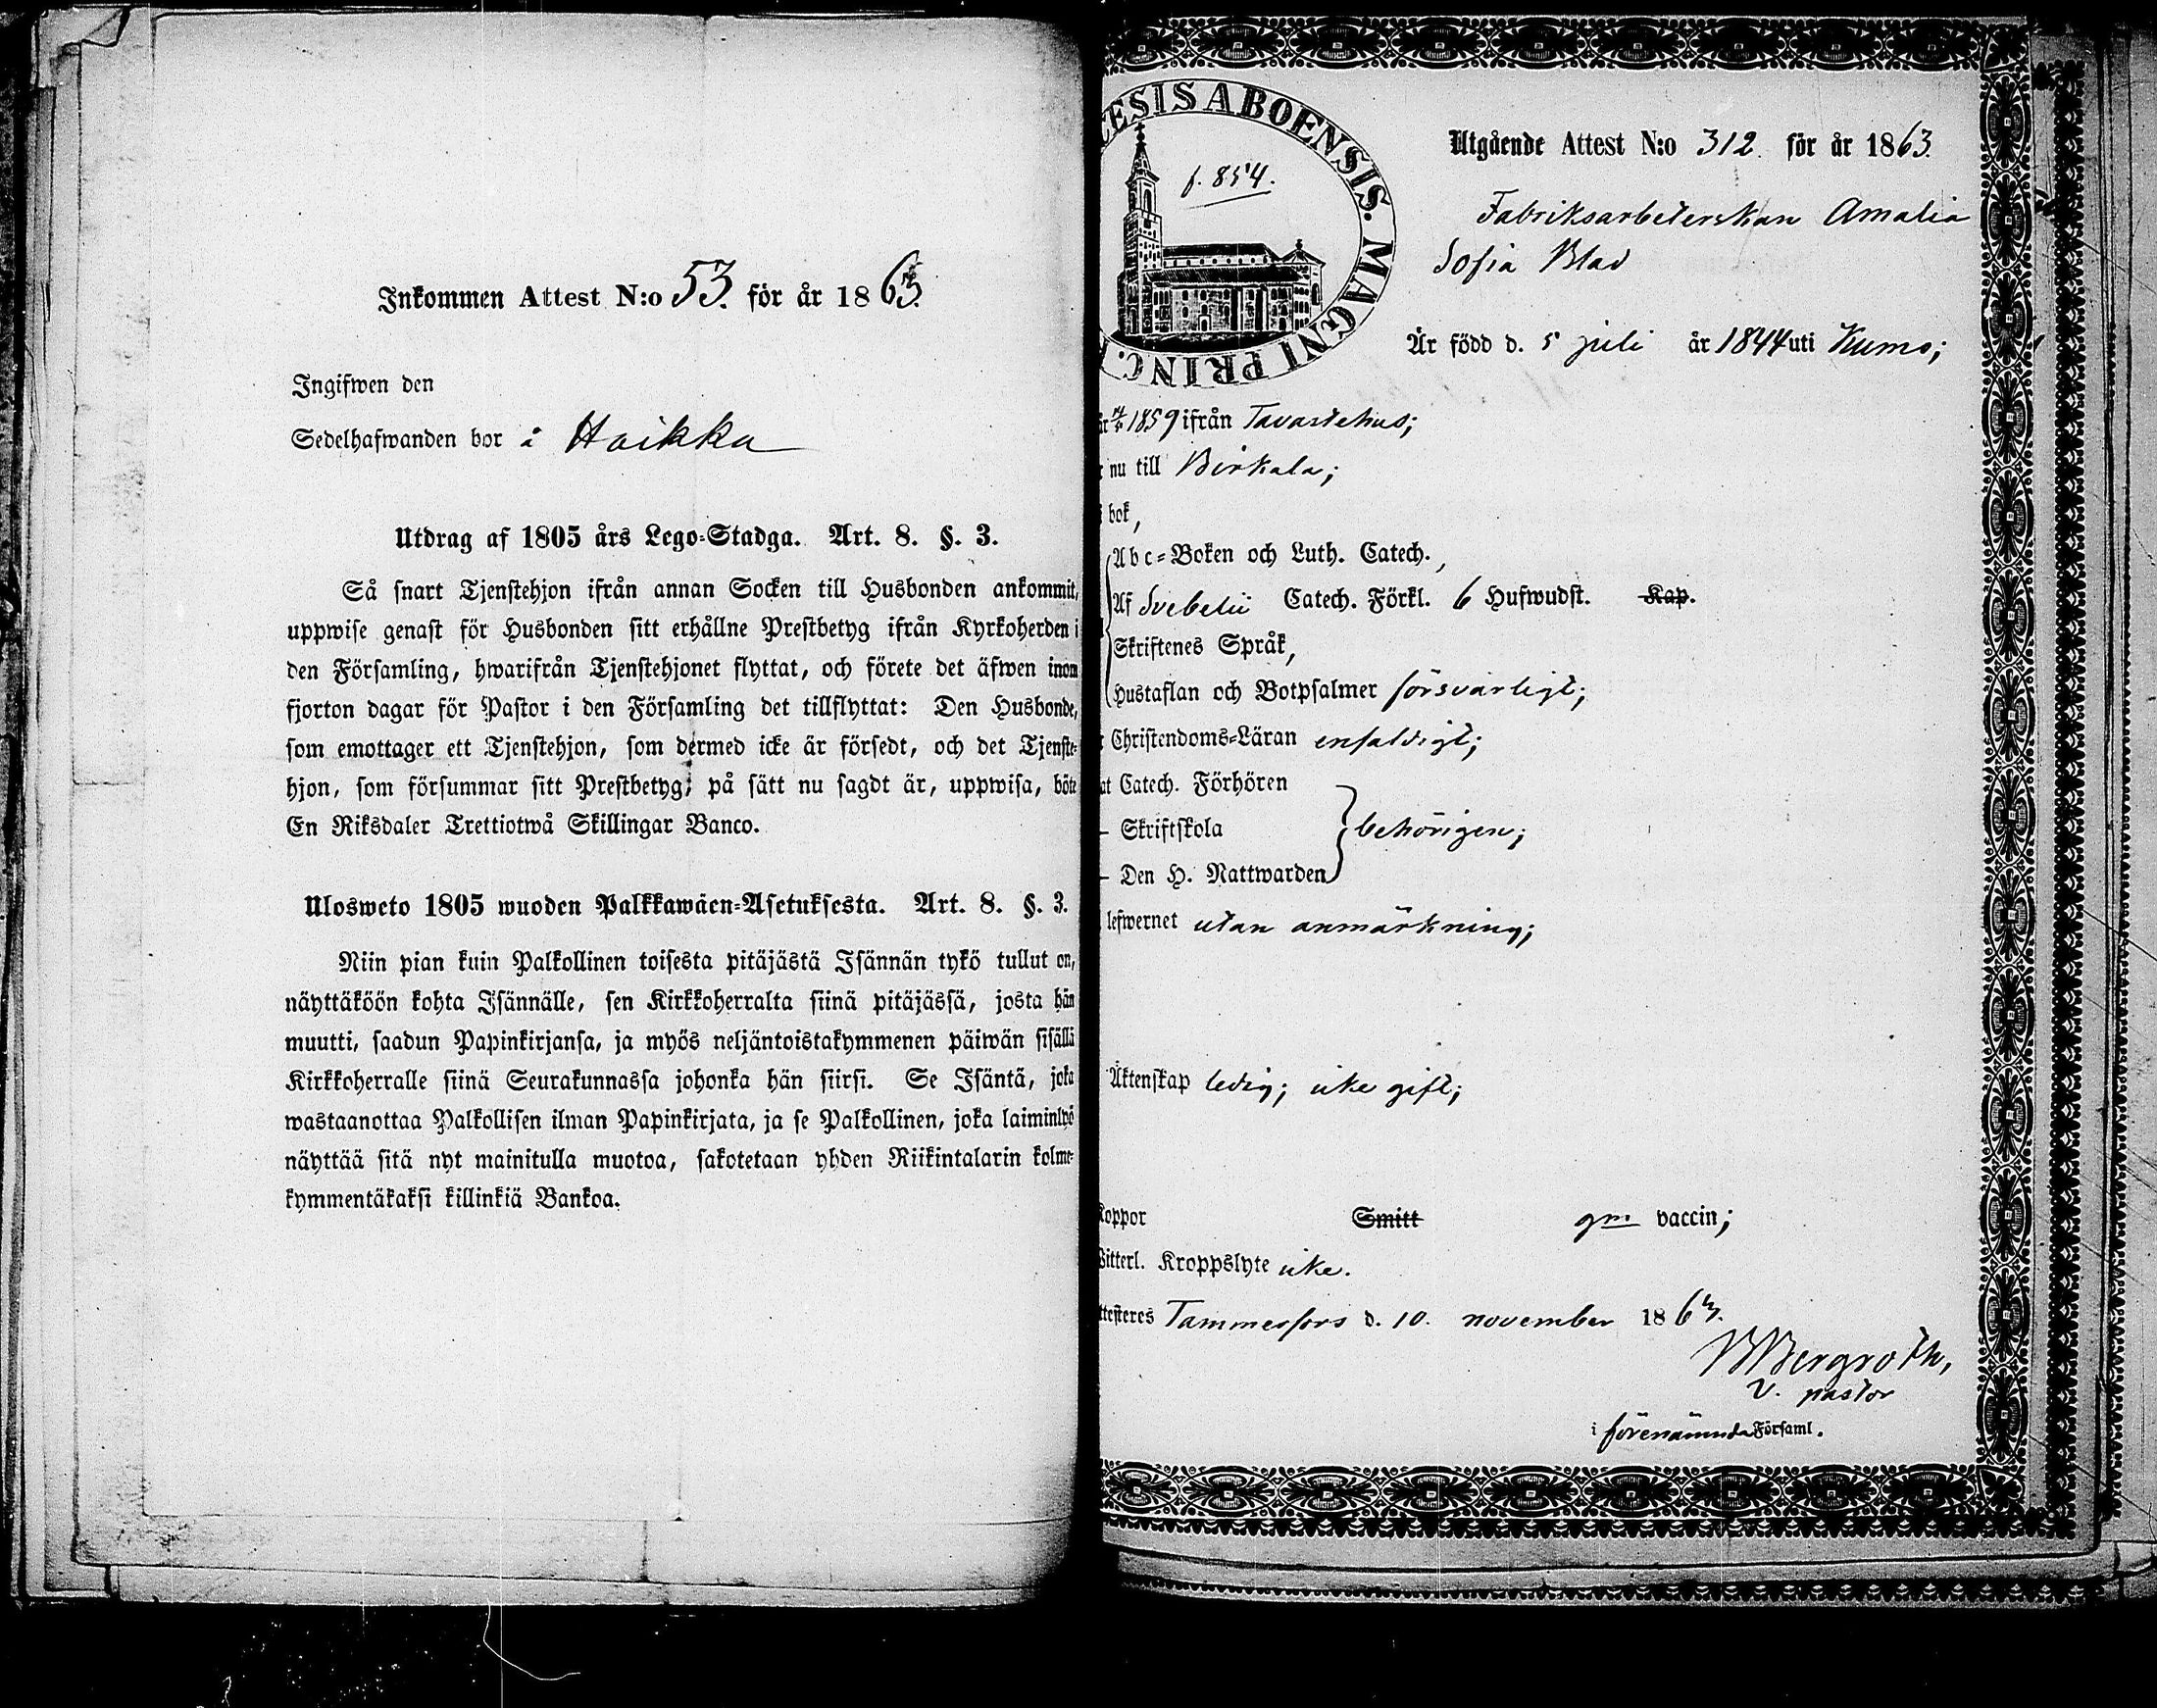 Inkommen Attest N:o 53. för år 1863.
Ingifwen den
Sedelhafwanden bor å Haikka
Utdrag af 1805 års Lego-Stadga. Art. 8. §. 3.
Så snart Tjenstehjon ifrån annan Socken till Husbonden ankommit,
uppwise genast för Husbonden sitt erhållne Prestbetyg ifrån Kyrkoherden i
den Församling, hwarifrån Tjenstehjonet flyttat, och förete det äfwen inom
fjorton dagar för Pastor i den Församling det tillflyttat: Den Husbonde,
som emottager ett Tjenstehjon, som dermed icke är försedt, och det Tjenste-
hjon, som försummar sitt Prestbetyg, på sätt nu sagdt är, uppwisa, böte
En Riksdaler Trettiotwå Skillingar Banco.
Ulosweto 1805 wuoden Palkkawäen-Asetuksesta. Art. 8. §. 3.
Niin pian kuin Palkollinen toisesta pitäjästä Isännän tykö tullut on,
näyttäköön kohta Isännälle, sen Kirkkoherralta siinä pitäjässä, josta hän
muutti, saadun Papinkirjansa, ja myös neljäntoistakymmenen päiwän sisällä
Kirkkoherralle siinä Seurakunnassa johonka hän siirsi. Se Isäntä, joka
wastaanottaa Palkollisen ilman Papinkirjata, ja se Palkollinen, joka laiminlyö
näyttää sitä nyt mainitulla muotoa, sakotetaan yhden Riikintalarin kolme-
kymmentäkaksi killinkiä Bankoa.
CESIS ABOENSIS. MAGNI PRINC.
f. 854.
Utgående Attest N:o 312. för år 1863.
Fabriksarbeterskan Amalia
Sofia Blad
Är född d. 5 juli år 1844 uti Kumo;
1859 ifrån Tavastehus;
nu till Birkala;
bok,
Abc-Boken och Luth. Catech.,
Af Svebelii Catech. Förkl. 6 Hufwudst. Kap.
Skriftenes Språk,
Hustaflan och Botpsalmer försvarligt;
Christendoms-Läran enfaldigt;
at Catech. Förhören
— Skriftskola behörigen;
— Den H. Nattwarden
lefwernet utan anmärkning;
Äktenskap ledig; icke gift;
Koppor Smitt gm vaccin;
Witterl. Kroppslyte icke.
ttesteres Tammerfors d. 10. november 1863.
Bergroth,
v. pastor
i förenämnda Församl.